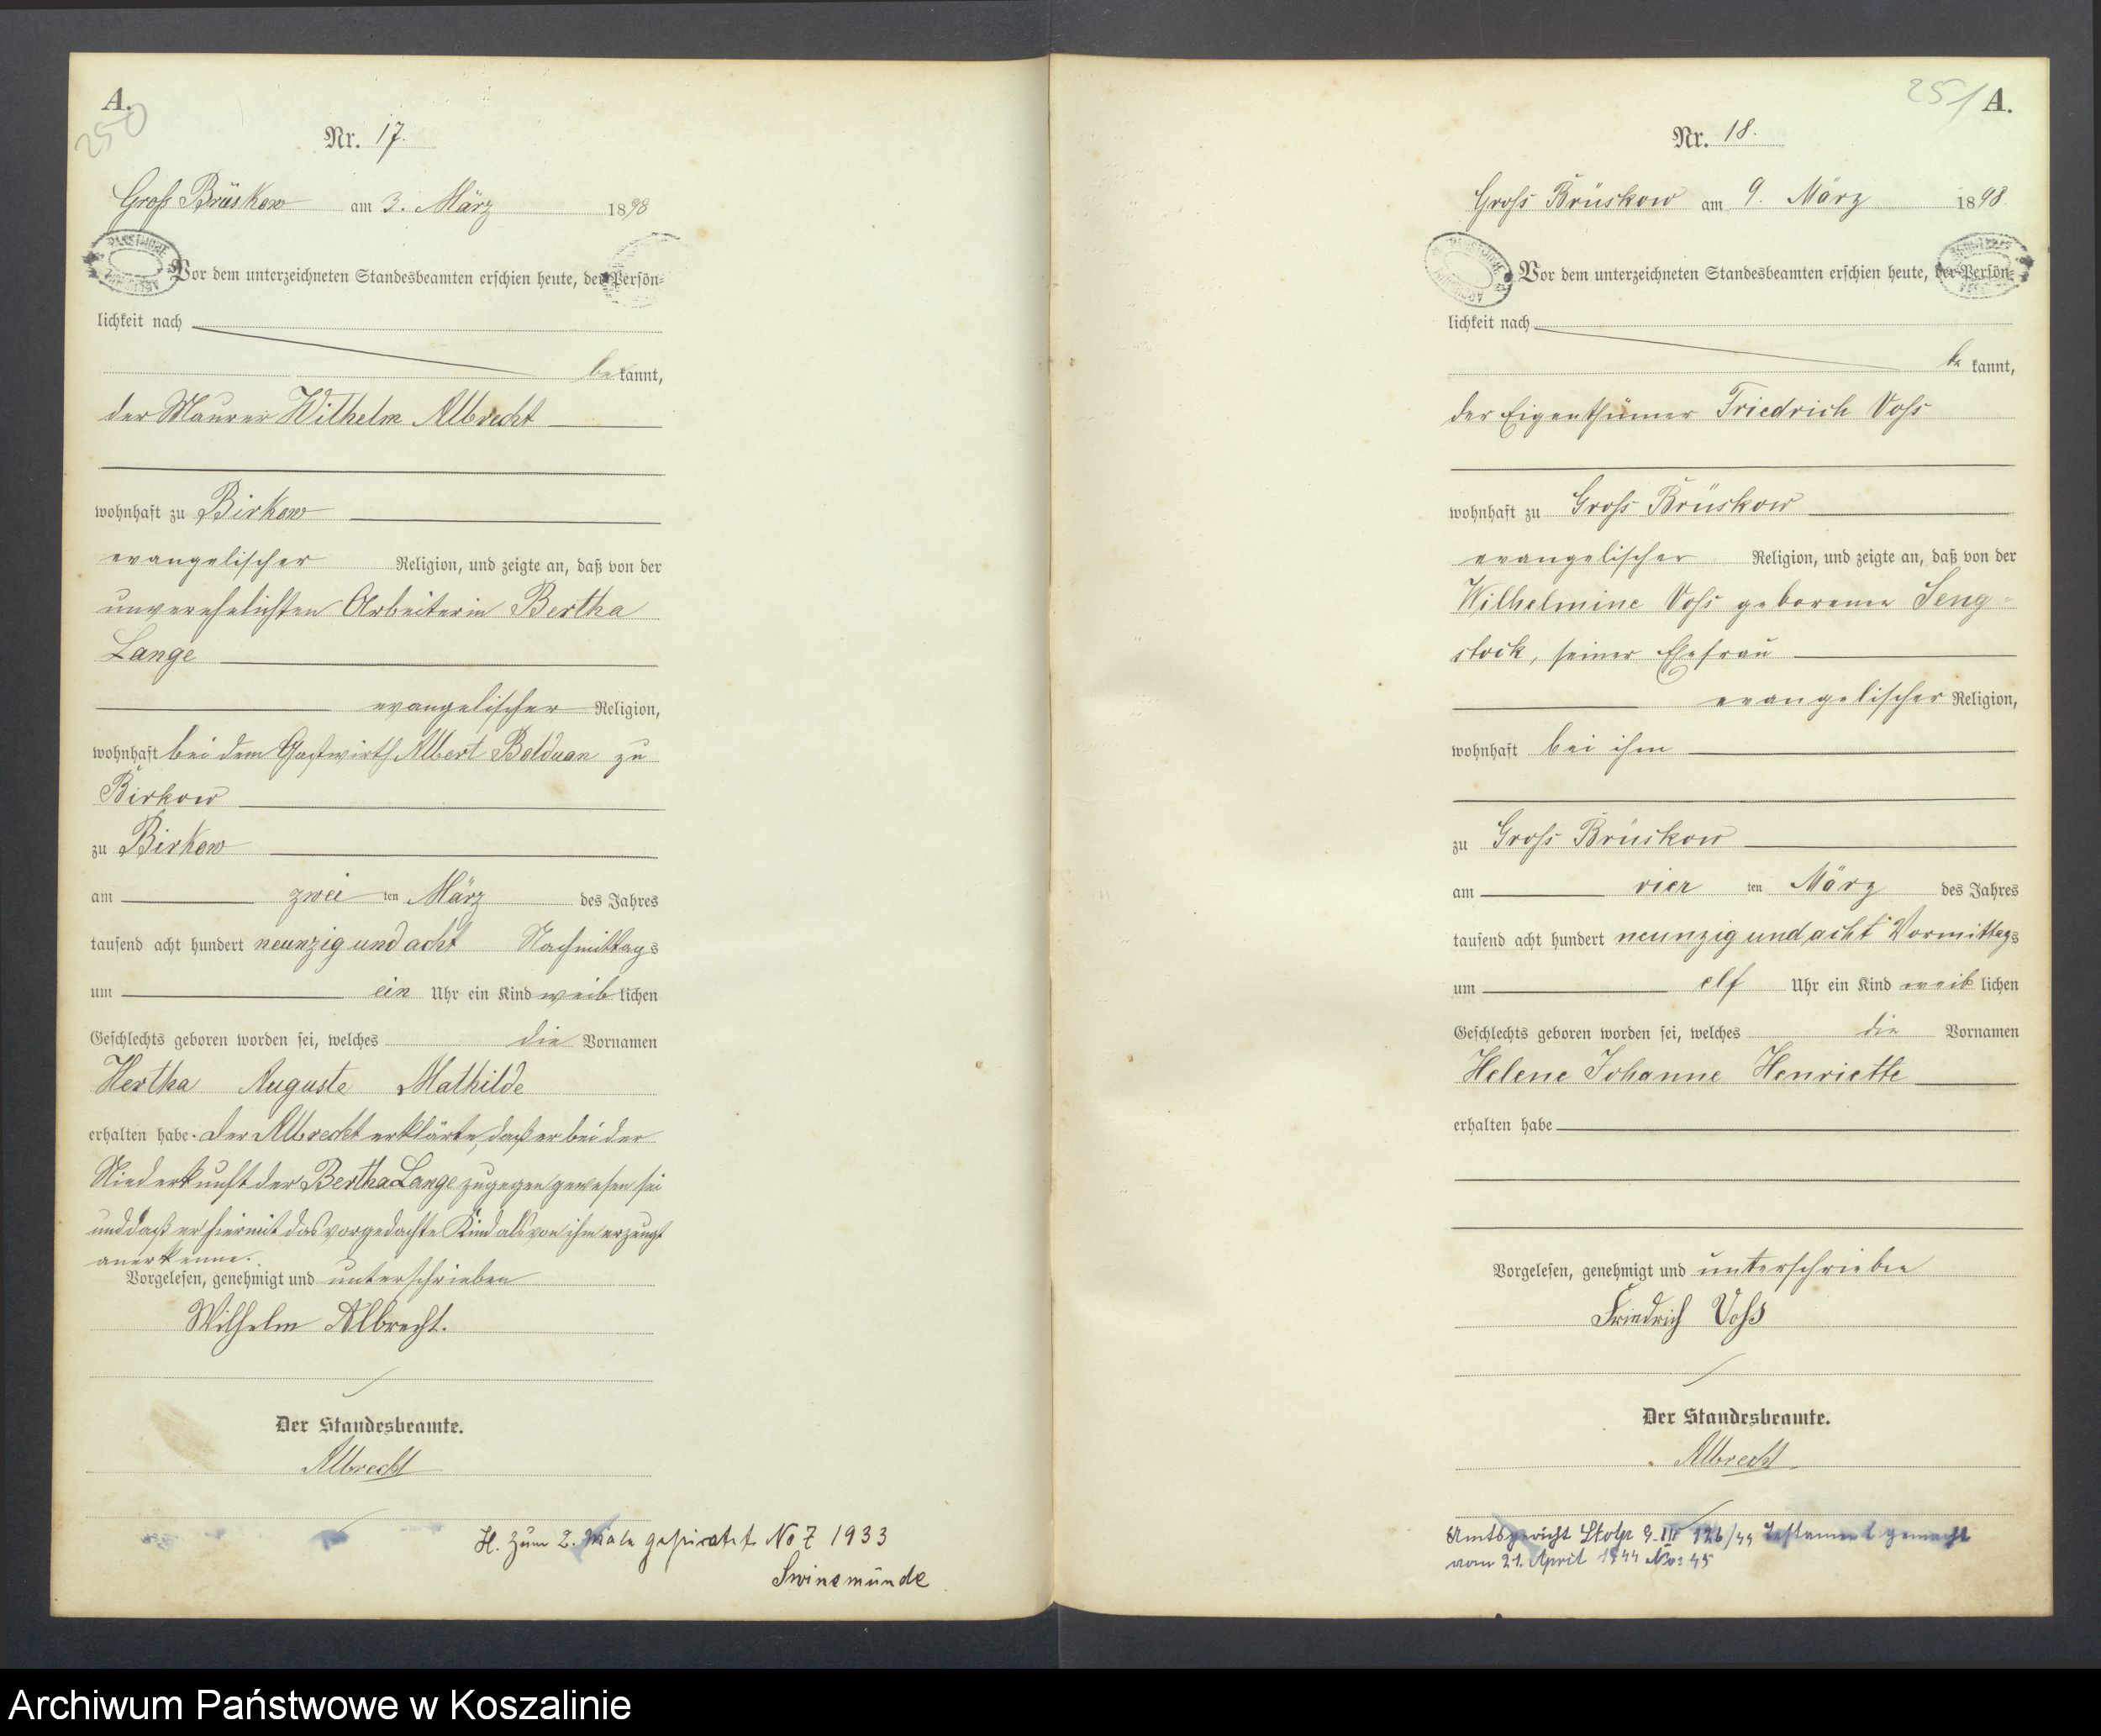 A.
250
Nr. 17.
Groß Brüskow am 3. März 1898
Vor dem unterzeichneten Standesbeamten erschien heute, der Persön-
lichkeit nach
bekannt,
der Maurer Wilhelm Albrecht
wohnhaft zu Birkow
evangelischer Religion, und zeigte an, daß von der
unverehelichten Arbeiterin Bertha
Lange
evangelischer Religion,
wohnhaft bei dem Gastwirth Albert Belduan zu
Birkow
zu Birkow
am zwei ten März des Jahres
tausend acht hundert neunzig und acht Nachmittags
um ein Uhr ein Kind weiblichen
Geschlechts geboren worden sei, welches die Vornamen
Hertha Auguste Mathilde
erhalten habe. Der Albrecht erklärte, daß er bei der
Niederkunft der Bertha Lange zugegen gewesen sei
und daß er hiermit das vorgedachte Kind als von ihm erzeugt
anerkenne.
Vorgelesen, genehmigt und unterschrieben
Wilhelm Albrecht.
Der Standesbeamte.
Albrecht
H. Zum 2. Male geheiratet No 7 1933
Swinemünde
251 A.
Nr. 18.
Groß Brüskow am 9. März 1898
Vor dem unterzeichneten Standesbeamten erschien heute, der Persön-
lichkeit nach
be kannt,
der Eigenthümer Friedrich Voß
wohnhaft zu Groß Brüskow
evangelischer Religion, und zeigte an, daß von der
Wilhelmine Voß geborene Seng-
stock, seiner Ehefrau
evangelischer Religion,
wohnhaft bei ihm
zu Groß Brüskow
am vier ten März des Jahres
tausend acht hundert neunzig und acht Vormittags
um elf Uhr ein Kind weiblichen
Geschlechts geboren worden sei, welches die Vornamen
Helene Johanne Henriette
erhalten habe
Vorgelesen, genehmigt und unterschrieben
Friedrich Voß
Der Standesbeamte.
Albrecht
Amtsgericht Stolp 9. III 126/44 Testament gemacht
vom 21. April 1944 No: 45
Archiwum Państwowe w Koszalinie